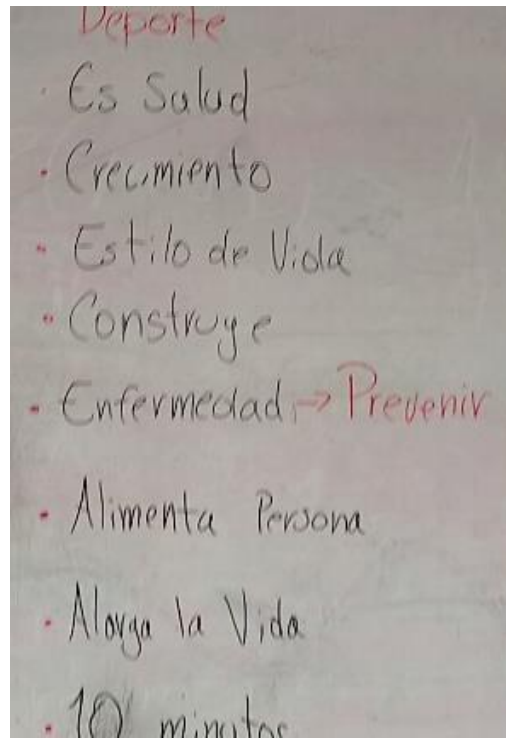 Deporte
· Es Salud
· Crecimiento
· Estilo de Vida
· Construye
· Enfermedad → Prevenir
· Alimenta Persona
· Alarga la Vida
· 10 minutos